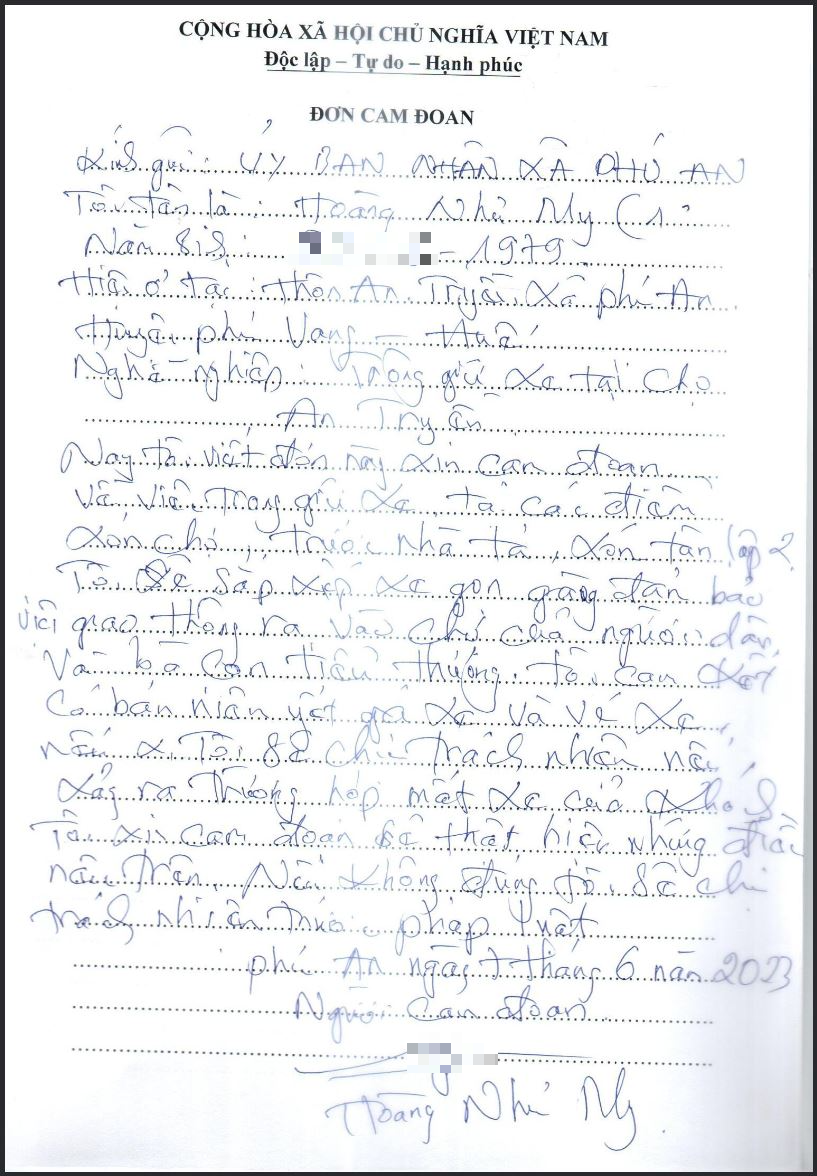 CỘNG HÒA XÃ HỘI CHỦ NGHĨA VIỆT NAM
Độc lập – Tự do – Hạnh phúc
ĐƠN CAM ĐOAN
Kính gửi: ỦY BAN NHÂN XÃ PHÚ AN
Tôi tên là: Hoàng Như My
Năm sinh: - 1979
Hiện ở tại: thôn An Truyền, Xã phú An
Huyện phú Vang - Huế
Nghề nghiệp: Trông giữ xe tại Chợ
An Truyền
Nay tôi viết đơn này xin cam đoan
về việc trong giữ xe, tại các điểm
xóm chợ, trước nhà tôi, xóm tân lập 2
Tôi sẽ sắp xếp xe gọn gàng đảm bảo
việc giao thông ra vào chợ của người dân
Và bà con tiểu thương. tôi cam kết
Có bản niên yết giá xe và vé xe
Tôi sẽ chịu trách nhiệm nếu
xảy ra Trường hợp mất xe của khách
Tôi xin cam đoan sẽ thật hiện những điều
nêu trên. Nếu không đúng tôi sẽ chịu
trách nhiệm trước pháp luật
phú An ngày 7 tháng 6 năm 2023
Người cam đoan
Hoàng Như My